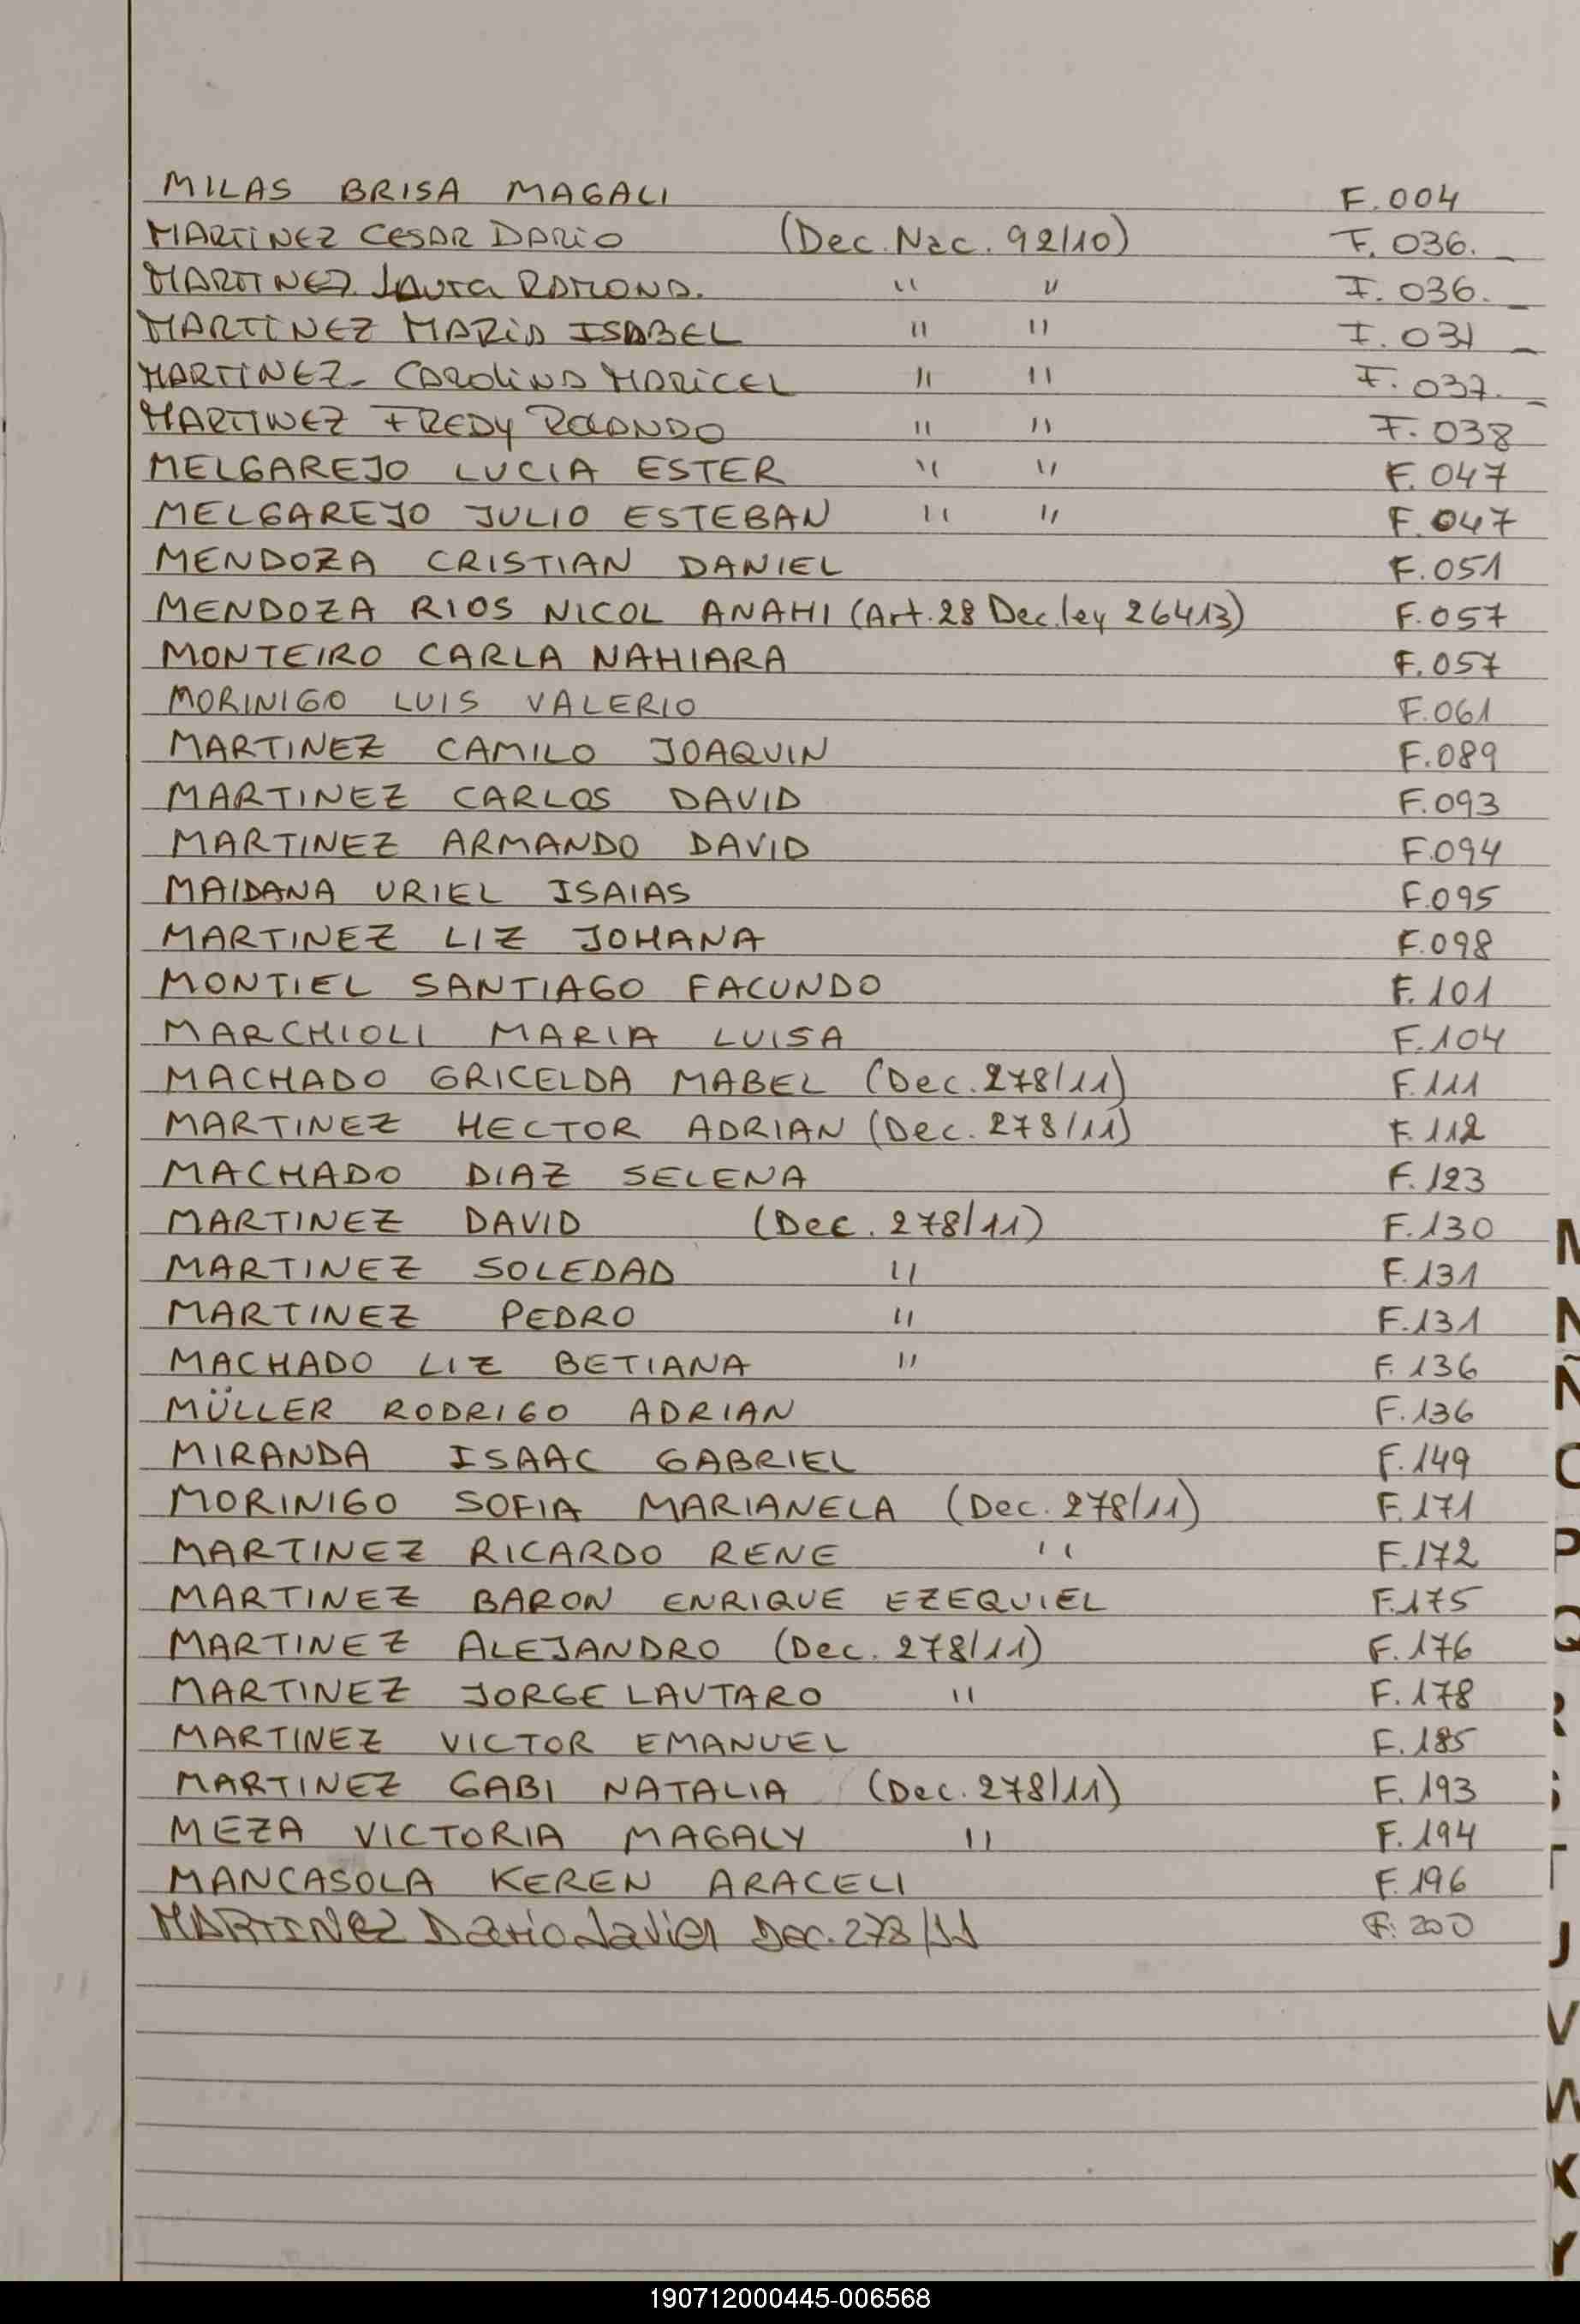 MILAS BRISA MAGALI F.004
MARTINEZ CESAR DARIO (Dec. Nac. 92/10) F. 036.
MARTINEZ Laura RAMONA. " " F. 036.
MARTINEZ MARIA ISABEL " " F. 037
MARTINEZ- CAROLINA MARICEL " " F. 037.
MARTINEZ FREDY ROLANDO " " F. 038
MELGAREJO LUCIA ESTER " " F. 047
MELGAREJO JULIO ESTEBAN " " F. 047
MENDOZA CRISTIAN DANIEL F.051
MENDOZA RIOS NICOL ANAHI (Art. 28 Dec. ley 26413) F.057
MONTEIRO CARLA NAHIARA F.057
MORINIGO LUIS VALERIO F.061
MARTINEZ CAMILO JOAQUIN F.089
MARTINEZ CARLOS DAVID F.093
MARTINEZ ARMANDO DAVID F.094
MAIDANA URIEL ISAIAS F.095
MARTINEZ LIZ JOHANA F.098
MONTIEL SANTIAGO FACUNDO F.101
MARCHIOLI MARIA LUISA F.104
MACHADO GRICELDA MABEL (Dec. 278/11) F.111
MARTINEZ HECTOR ADRIAN (Dec. 278/11) F.112
MACHADO DIAZ SELENA F.123
MARTINEZ DAVID (Dec. 278/11) F.130
MARTINEZ SOLEDAD " F.131
MARTINEZ PEDRO " F.131
MACHADO LIZ BETIANA " F.136
MÜLLER RODRIGO ADRIAN F.136
MIRANDA ISAAC GABRIEL F.149
MORINIGO SOFIA MARIANELA (Dec. 278/11) F.171
MARTINEZ RICARDO RENE " F.172
MARTINEZ BARON ENRIQUE EZEQUIEL F.175
MARTINEZ ALEJANDRO (Dec. 278/11) F.176
MARTINEZ JORGE LAUTARO " F.178
MARTINEZ VICTOR EMANUEL F.185
MARTINEZ GABI NATALIA (Dec. 278/11) F.193
MEZA VICTORIA MAGALY " F.194
MANCASOLA KEREN ARACELI F.196
MARTINEZ Dario Javier Dec. 278/11 F. 200
M
N
Ñ
O
P
Q
R
S
T
U
V
W
X
Y
190712000445-006568